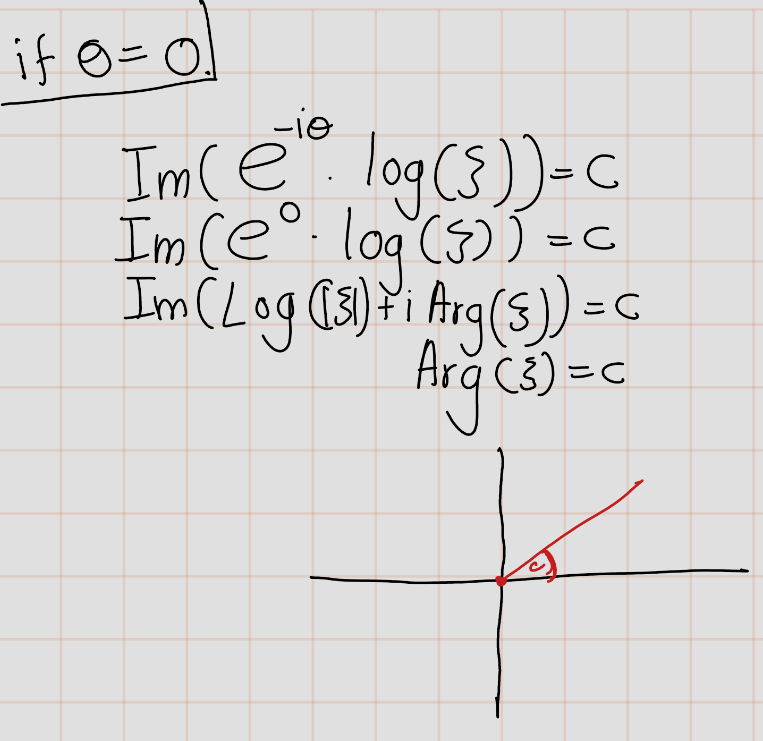 if θ = 0.
Im(e^{-iθ} · log(ξ)) = c
Im(e^0 · log(ξ)) = c
Im(Log(|ξ|) + i Arg(ξ)) = c
Arg(ξ) = c
c